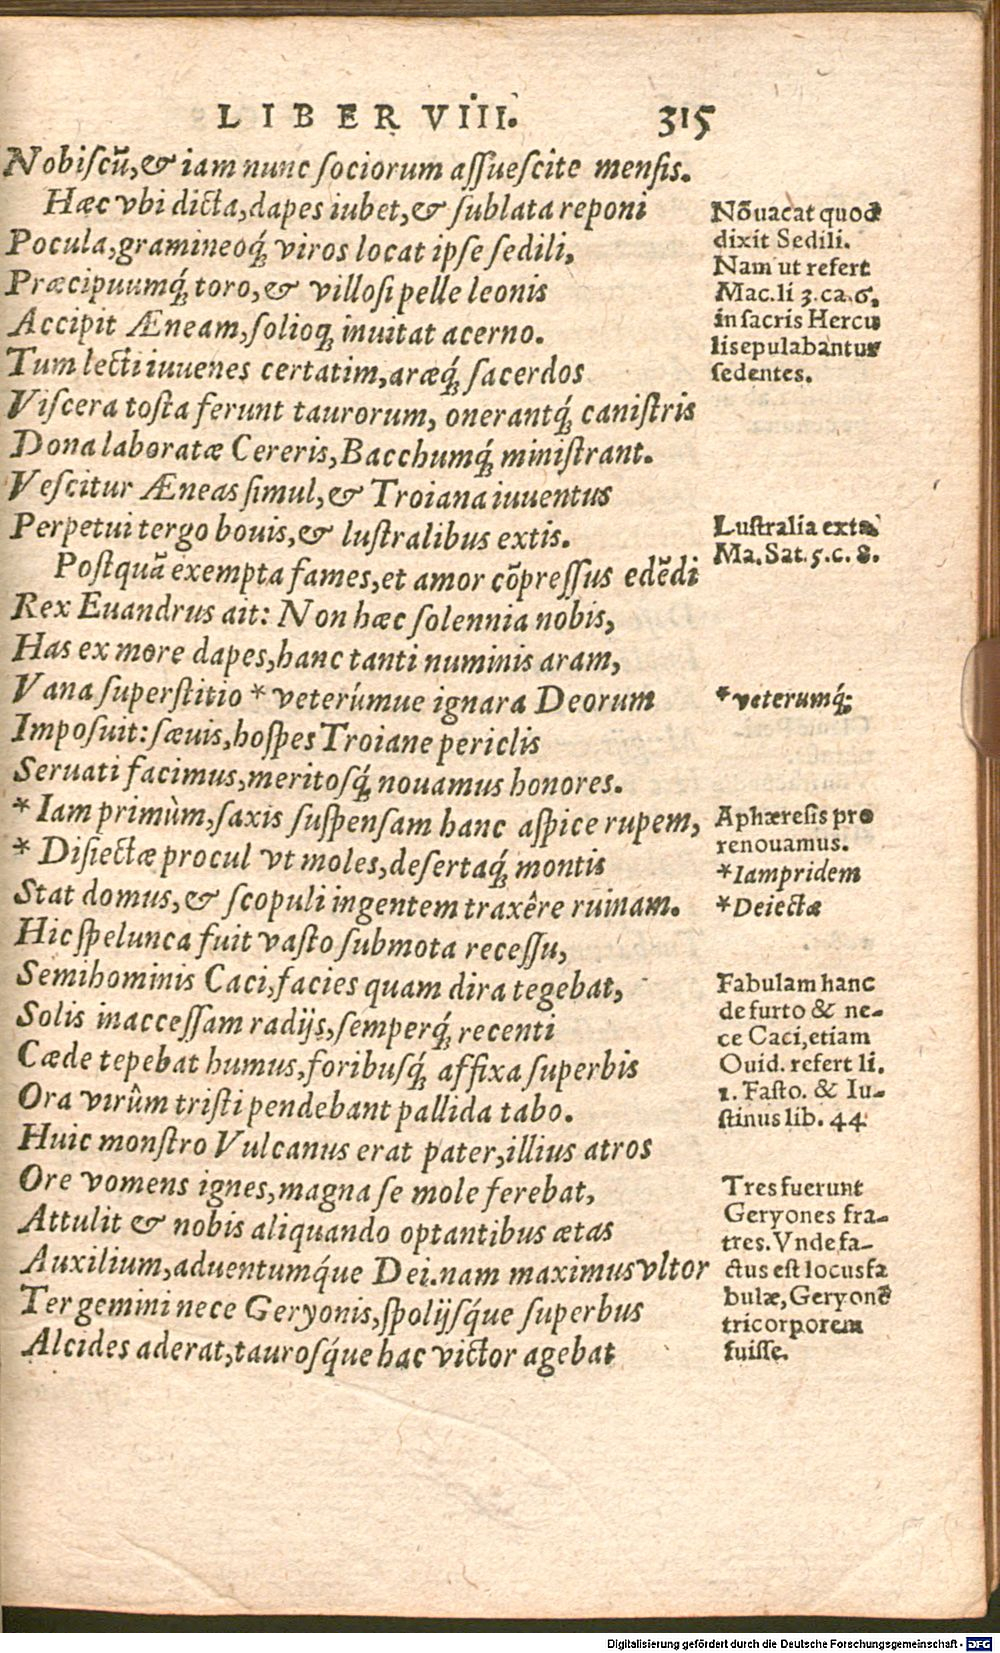 LIBER VIII. 315
Nobiscũ, & iam nunc sociorum assuescite mensis.
Hæc vbi dicta, dapes iubet, & sublata reponi
Pocula, gramineoq́; viros locat ipse sedili,
Præcipuumq́; toro, & villosi pelle leonis
Accipit Æneam, solioq; inuitat acerno.
Tum lecti iuuenes certatim, aræq́; sacerdos
Viscera tosta ferunt taurorum, onerantq́; canistris
Dona laboratæ Cereris, Bacchumq́; ministrant.
Vescitur Æneas simul, & Troiana iuuentus
Perpetui tergo bouis, & lustralibus extis.
Postquã exempta fames, et amor cõpressus edẽdi
Rex Euandrus ait: Non hæc solennia nobis,
Has ex more dapes, hanc tanti numinis aram,
Vana superstitio * veterúmue ignara Deorum
Imposuit: sæuis, hospes Troiane periclis
Seruati facimus, meritosq́; nouamus honores.
* Iam primùm, saxis suspensam hanc aspice rupem,
* Disiectæ procul vt moles, desertaq́; montis
Stat domus, & scopuli ingentem traxêre ruinam.
Hic spelunca fuit vasto submota recessu,
Semihominis Caci, facies quam dira tegebat,
Solis inaccessam radijs, semperq́; recenti
Cæde tepebat humus, foribusq́; affixa superbis
Ora virûm tristi pendebant pallida tabo.
Huic monstro Vulcanus erat pater, illius atros
Ore vomens ignes, magna se mole ferebat,
Attulit & nobis aliquando optantibus ætas
Auxilium, aduentumq́ue Dei. nam maximus vltor
Tergemini nece Geryonis, spolijsq́ue superbus
Alcides aderat, taurosq́ue hac victor agebat
Nõ uacat quod
dixit Sedili.
Nam ut refert
Mac. li 3. ca. 6.
in sacris Hercu
lis epulabantur
sedentes.
Lustralia exta
Ma. Sat. 5. c. 8.
* veterumq́;
Aphæresis pro
renouamus.
*Iampridem
*Deiectæ
Fabulam hanc
de furto & ne-
ce Caci, etiam
Ouid. refert li.
1. Fasto. & Iu-
stinus lib. 44
Tres fuerunt
Geryones fra-
tres. Vnde fa-
ctus est locus fa
bulæ, Geryonẽ
tricorporem
fuisse.
Digitalisierung gefördert durch die Deutsche Forschungsgemeinschaft - DFG